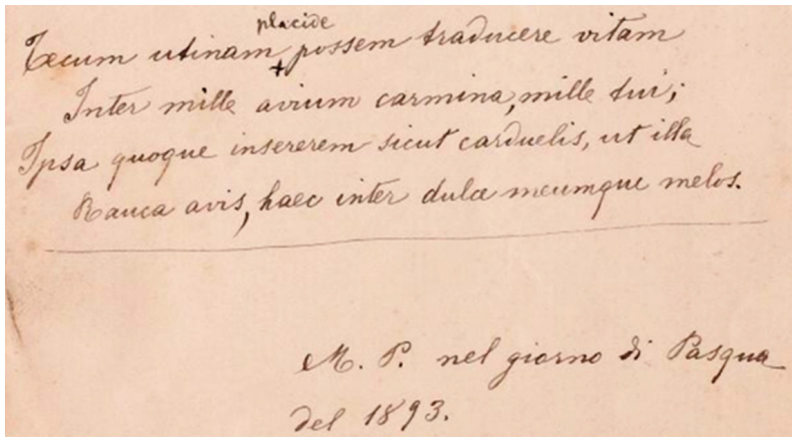 placide
Tecum utinam + possem traducere vitam
Inter mille avium carmina, mille tui;
Ipsa quoque insererem sicut carduelis, ut illa
Rauca avis, haec inter dulce meumque melos.
M. P. nel giorno di Pasqua
del 1893.